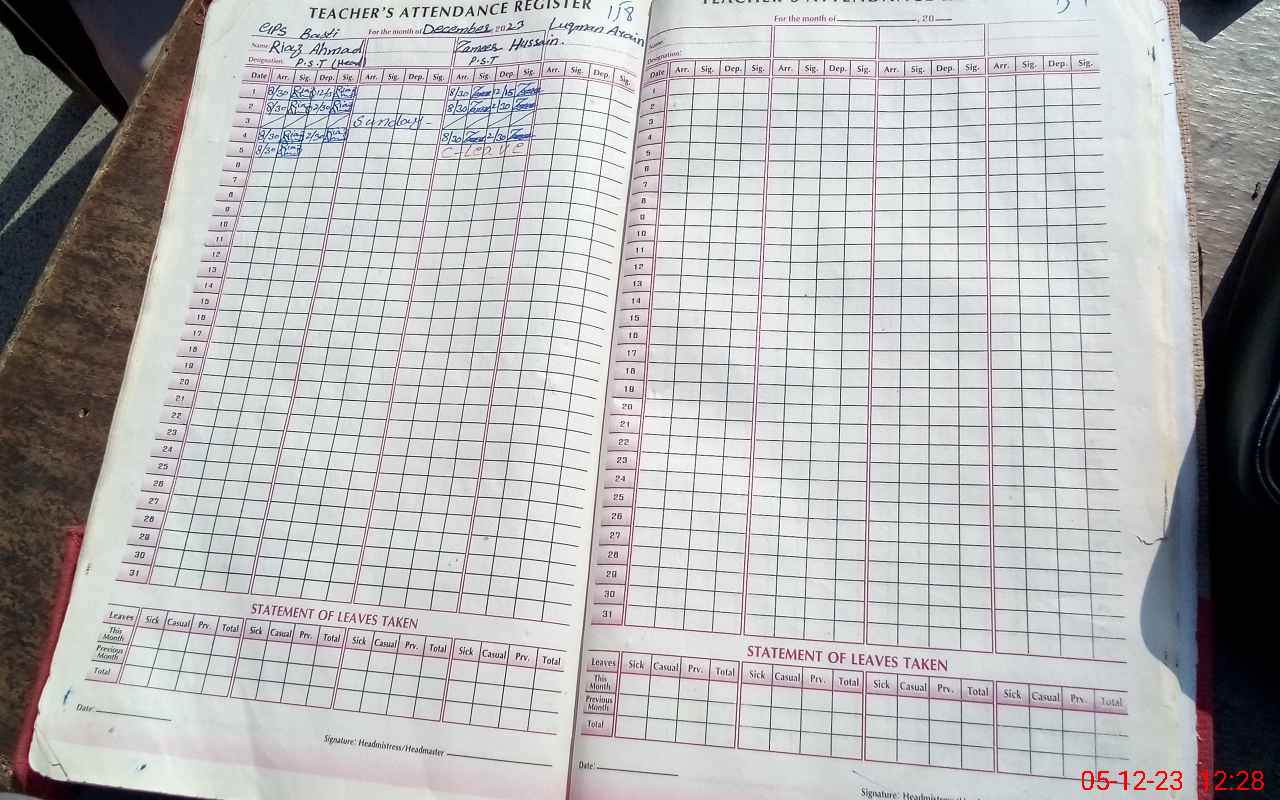 TEACHER'S ATTENDANCE REGISTER 1/8
GPS Basti For the month of December 2023 Luqman Arain
Name: Riaz Ahmad Zameer Hussain.
Designation: P.S.T (Head) P.S.T
Date Arr. Sig. Dep. Sig. Arr. Sig. Dep. Sig. Arr. Sig. Dep. Sig. Arr. Sig. Dep. Sig.
1 8/30 Riaz 12/15 Riaz 8/30 12/15
2 8/30 Riaz 2/30 Riaz 8/30 2/30
3 Sunday-
4 8/30 Riaz 2/30 Riaz 8/30 2/30
5 8/30 Riaz C-Leave
6
7
8
9
10
11
12
13
14
15
16
17
18
19
20
21
22
23
24
25
26
27
28
29
30
31
STATEMENT OF LEAVES TAKEN
Leaves Sick Casual Prv. Total Sick Casual Prv. Total Sick Casual Prv. Total Sick Casual Prv. Total
This Month
Previous Month
Total
Date:
Signature: Headmistress/Headmaster
TEACHER'S ATTENDANCE
For the month of 20
Name:
Designation:
Date Arr. Sig. Dep. Sig. Arr. Sig. Dep. Sig. Arr. Sig. Dep. Sig. Arr. Sig. Dep. Sig.
1
2
3
4
5
6
7
8
9
10
11
12
13
14
15
16
17
18
19
20
21
22
23
24
25
26
27
28
29
30
31
STATEMENT OF LEAVES TAKEN
Leaves Sick Casual Prv. Total Sick Casual Prv. Total Sick Casual Prv. Total Sick Casual Prv. Total
This Month
Previous Month
Total
Date:
Signature: Headmistress/
05-12-23 12:28